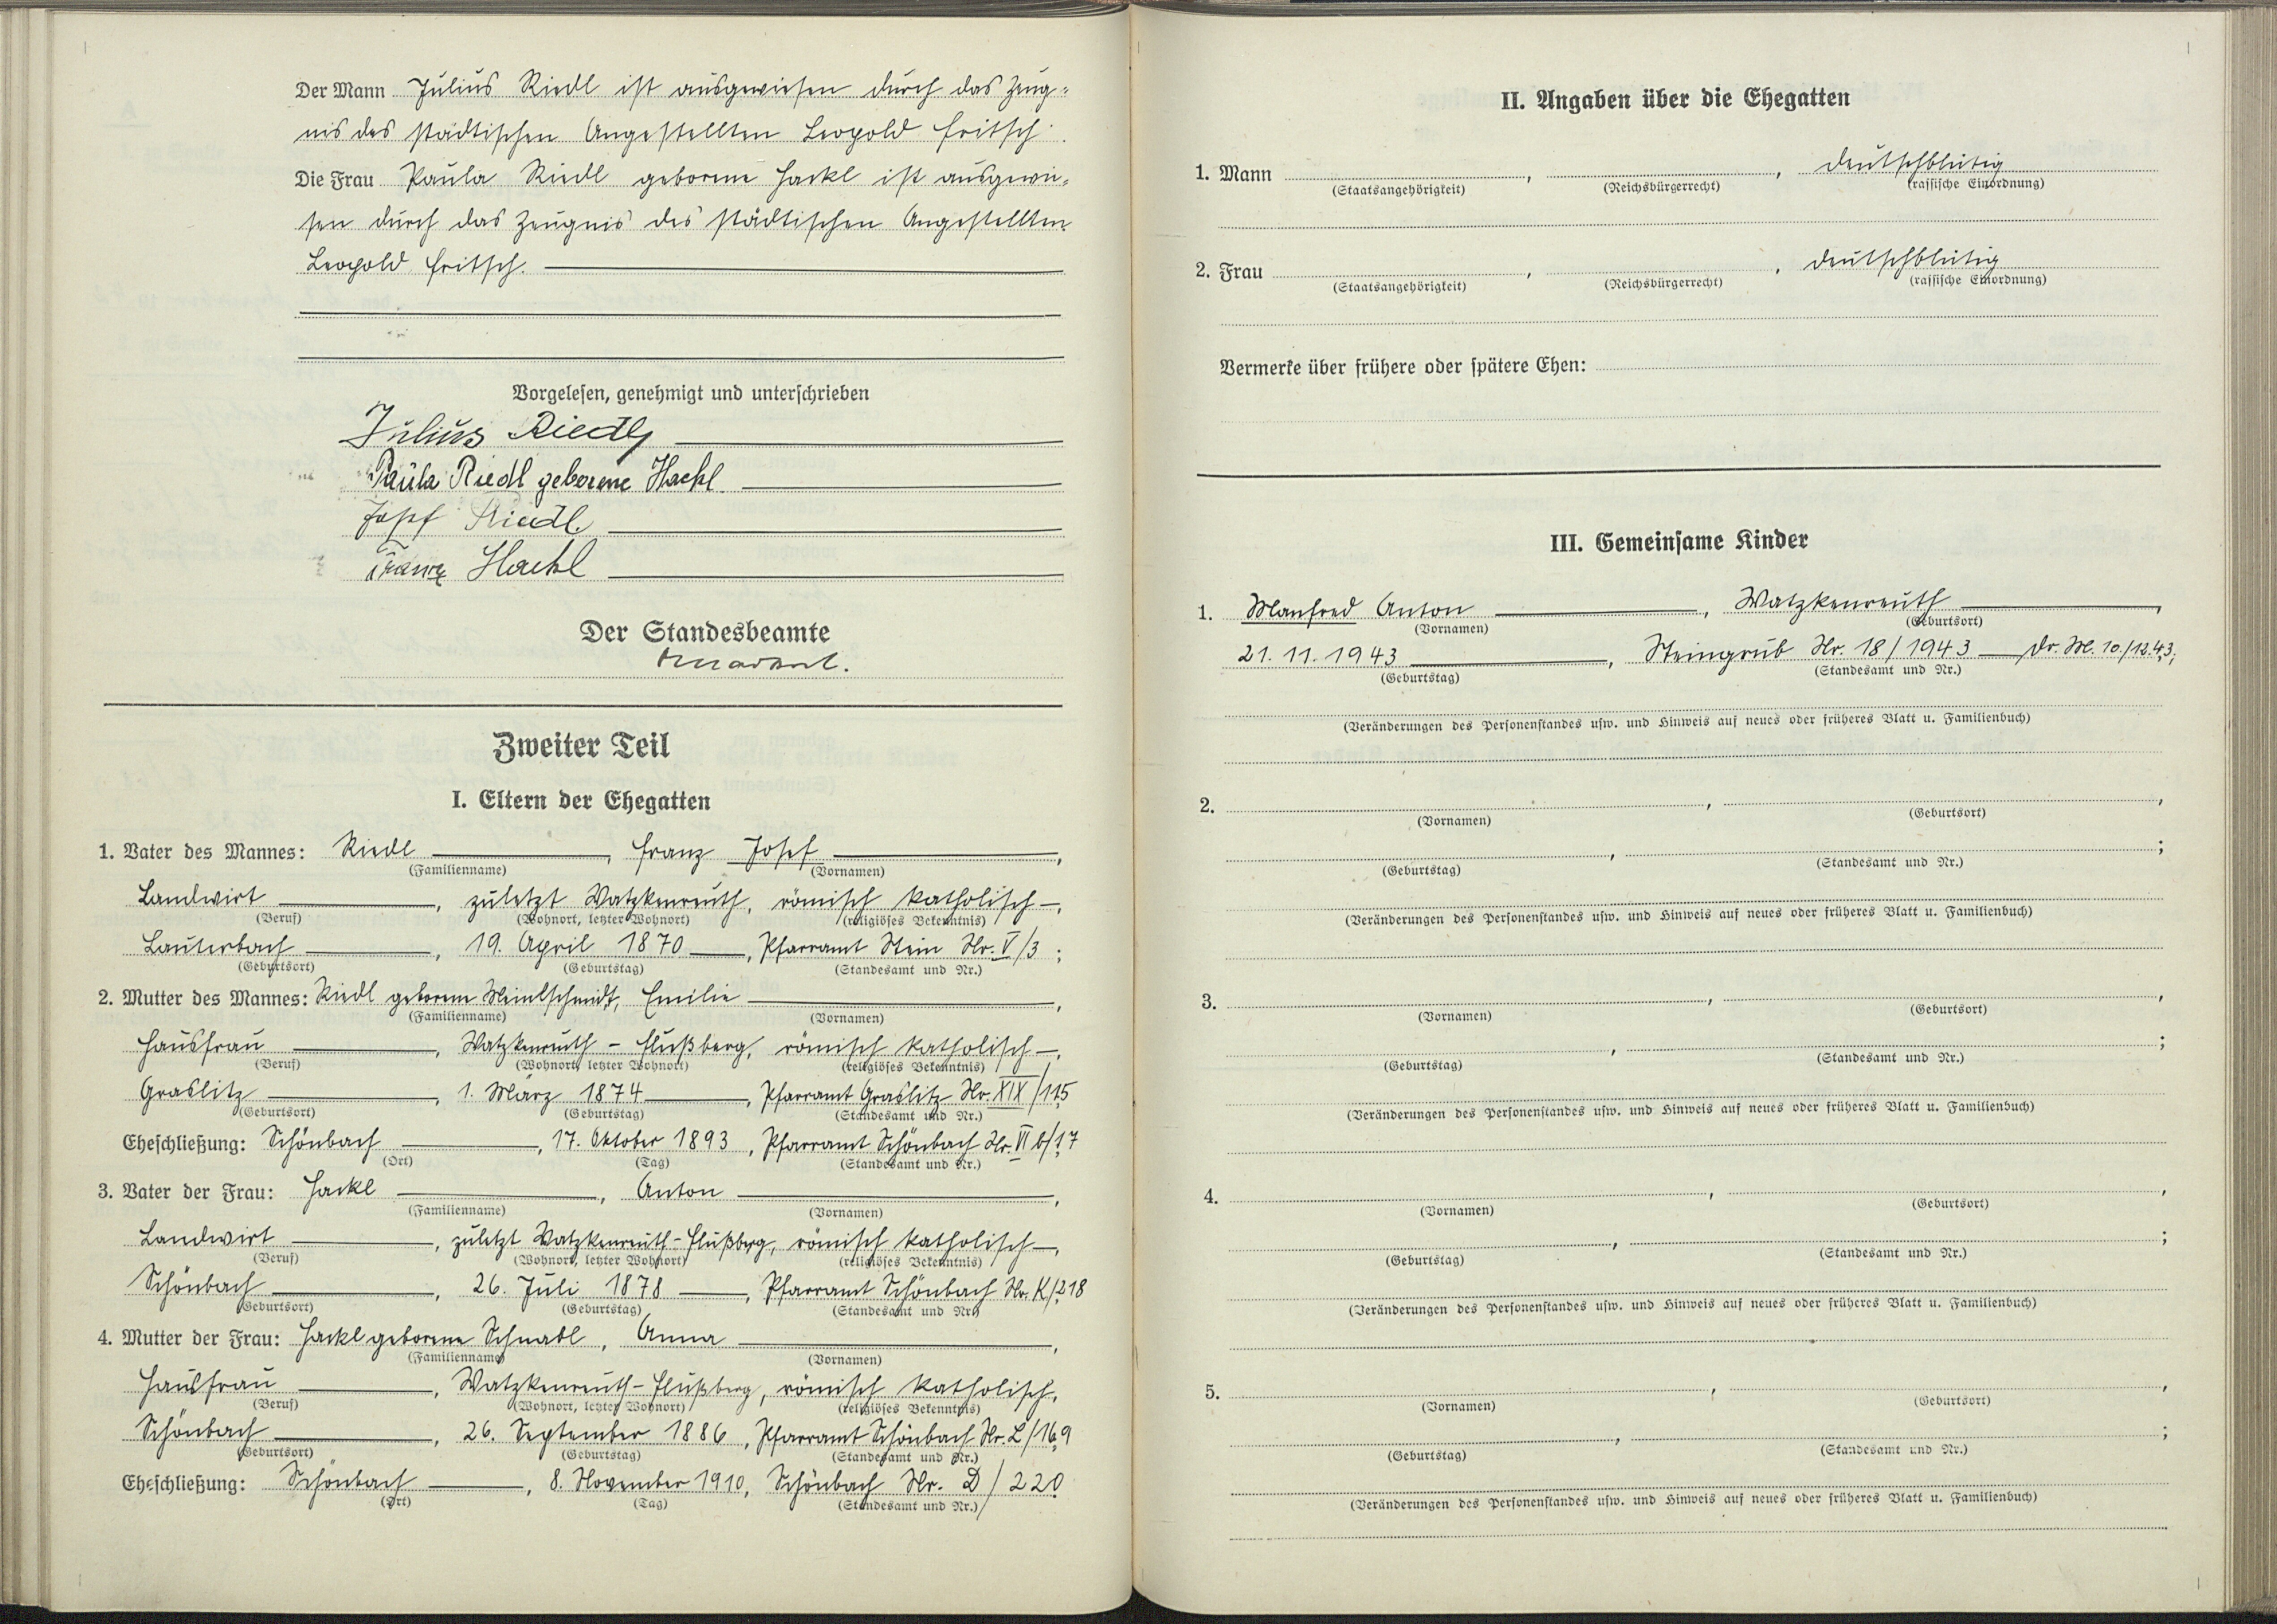 Der Mann Julius Riedl ist ausgewiesen durch das Zeug-
nis des städtischen Angestellten Leopold Fritsch.
Die Frau Paula Riedl geborene Hackl ist ausgewie-
sen durch das Zeugnis des städtischen Angestellten
Leopold Fritsch.
Vorgelesen, genehmigt und unterschrieben
Julius Riedl
Paula Riedl geborene Hackl
Josef Riedl.
Franz Hackl
Der Standesbeamte
Zweiter Teil
I. Eltern der Ehegatten
1. Vater des Mannes: Riedl, Franz Josef,
(Familienname) (Vornamen)
Landwirt, zuletzt Watzkenreuth, römisch katholisch,
(Beruf) (Wohnort, letzter Wohnort) (religiöses Bekenntnis)
Lauterbach, 19. April 1870, Pfarramt Stein Nr. V/3;
(Geburtsort) (Geburtstag) (Standesamt und Nr.)
2. Mutter des Mannes: Riedl geborene Meinlschmidt, Emilie,
(Familienname) (Vornamen)
Hausfrau, Watzkenreuth - Flußberg, römisch katholisch,
(Beruf) (Wohnort, letzter Wohnort) (religiöses Bekenntnis)
Graslitz, 1. März 1874, Pfarramt Graslitz Nr. XIX/115
(Geburtsort) (Geburtstag) (Standesamt und Nr.)
Eheschließung: Schönbach, 17. Oktober 1893, Pfarramt Schönbach Nr. VI b/17
(Ort) (Tag) (Standesamt und Nr.)
3. Vater der Frau: Hackl, Anton,
(Familienname) (Vornamen)
Landwirt, zuletzt Watzkenreuth-Flußberg, römisch katholisch,
(Beruf) (Wohnort, letzter Wohnort) (religiöses Bekenntnis)
Schönbach, 26. Juli 1878, Pfarramt Schönbach Nr. K/218
(Geburtsort) (Geburtstag) (Standesamt und Nr.)
4. Mutter der Frau: Hackl geborene Schnabl, Anna,
(Familienname) (Vornamen)
Hausfrau, Watzkenreuth-Flußberg, römisch katholisch,
(Beruf) (Wohnort, letzter Wohnort) (religiöses Bekenntnis)
Schönbach, 26. September 1886, Pfarramt Schönbach Nr. L/169
(Geburtsort) (Geburtstag) (Standesamt und Nr.)
Eheschließung: Schönbach, 8. November 1910, Schönbach Nr. D/220
(Ort) (Tag) (Standesamt und Nr.)
II. Angaben über die Ehegatten
1. Mann , , deutschblütig
(Staatsangehörigkeit) (Reichsbürgerrecht) (rassische Einordnung)
2. Frau , , deutschblütig
(Staatsangehörigkeit) (Reichsbürgerrecht) (rassische Einordnung)
Vermerke über frühere oder spätere Ehen:
III. Gemeinsame Kinder
1. Manfred Anton, Watzkenreuth,
(Vornamen) (Geburtsort)
21. 11. 1943, Steingrub Nr. 18/1943 10./12.43;
(Geburtstag) (Standesamt und Nr.)
(Veränderungen des Personenstandes usw. und Hinweis auf neues oder früheres Blatt u. Familienbuch)
2. , ,
(Vornamen) (Geburtsort)
, ;
(Geburtstag) (Standesamt und Nr.)
(Veränderungen des Personenstandes usw. und Hinweis auf neues oder früheres Blatt u. Familienbuch)
3. , ,
(Vornamen) (Geburtsort)
, ;
(Geburtstag) (Standesamt und Nr.)
(Veränderungen des Personenstandes usw. und Hinweis auf neues oder früheres Blatt u. Familienbuch)
4. , ,
(Vornamen) (Geburtsort)
, ;
(Geburtstag) (Standesamt und Nr.)
(Veränderungen des Personenstandes usw. und Hinweis auf neues oder früheres Blatt u. Familienbuch)
5. , ,
(Vornamen) (Geburtsort)
, ;
(Geburtstag) (Standesamt und Nr.)
(Veränderungen des Personenstandes usw. und Hinweis auf neues oder früheres Blatt u. Familienbuch)